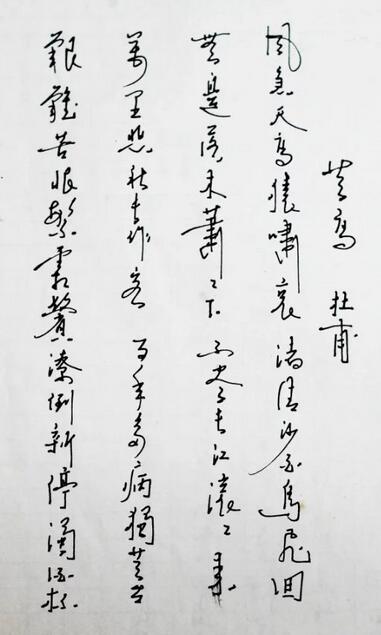 登高 杜甫
風急天高猿嘯哀渚清沙白鳥飛回
無邊落木蕭〻下不盡長江滾〻來
萬里悲秋常作客百年多病獨登台
艱難苦恨繁霜鬢潦倒新停濁酒杯